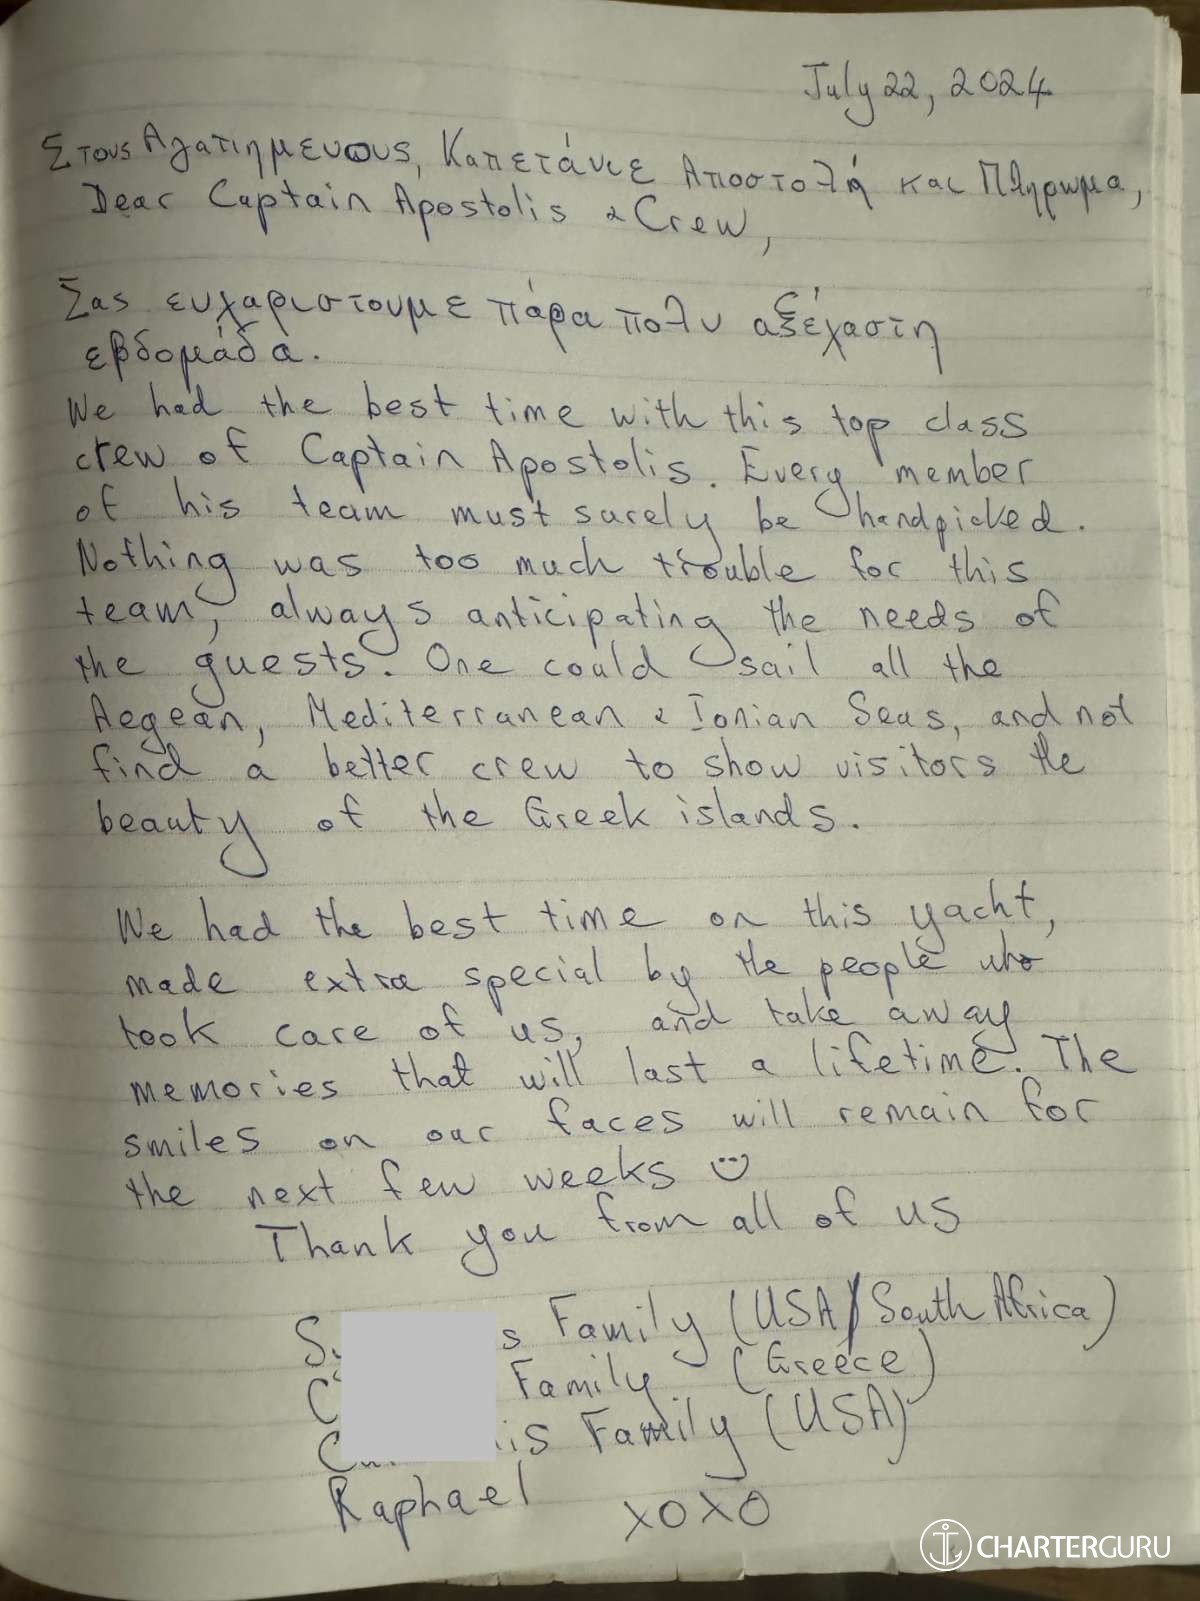 July 22, 2024
Στους Αγαπημενους, Καπετάνιε Αποστολή και Πληρωμα,
Dear Captain Apostolis & Crew,
Σας ευχαριστουμε πάρα πολυ αξέχαστη
εβδομάδα.
We had the best time with this top class
crew of Captain Apostolis. Every member
of his team must surely be handpicked.
Nothing was too much trouble for this
team, always anticipating the needs of
the guests. One could sail all the
Aegean, Mediterranean & Ionian Seas, and not
find a better crew to show visitors the
beauty of the Greek islands.
We had the best time on this yacht,
made extra special by the people who
took care of us, and take away
memories that will last a lifetime. The
smiles on our faces will remain for
the next few weeks
Thank you from all of us
Family (USA/South Africa)
Family (Greece)
Family (USA)
Raphael
XOXO
CHARTERGURU